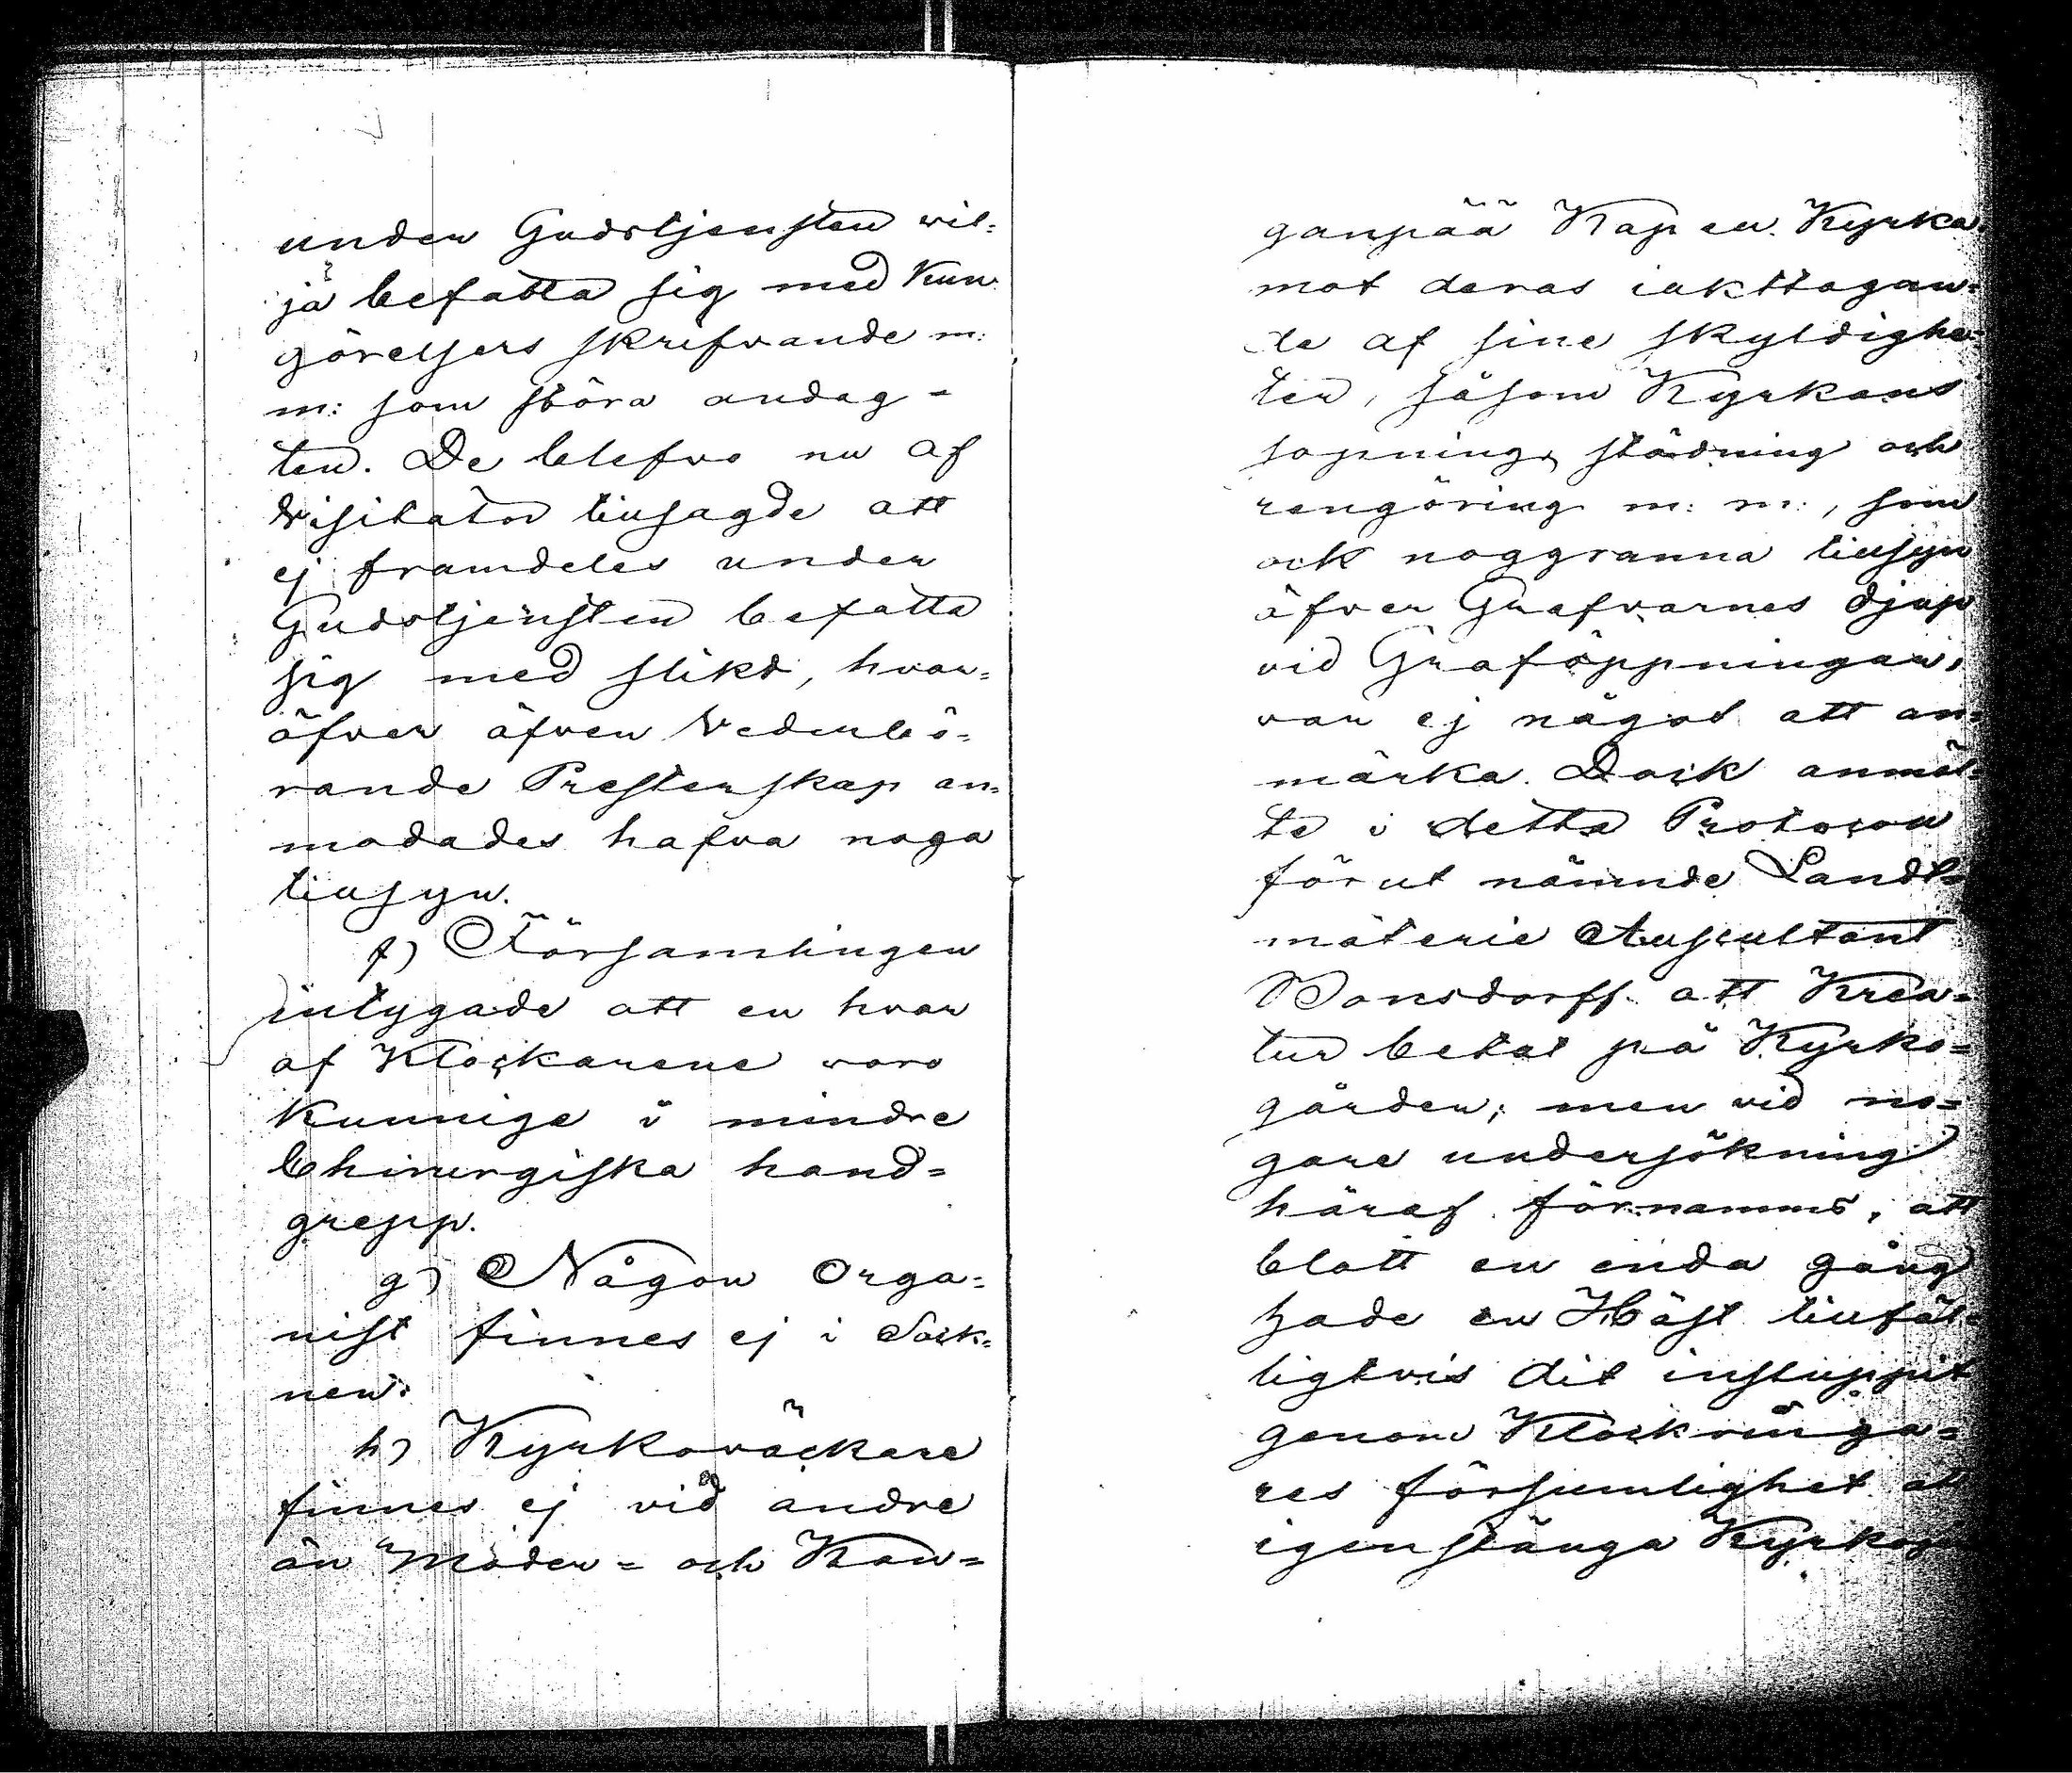 under Gudstjensten vil=
ja befatta sig med Kun=
görelsers skrifvande m:
m: som störa andag=
ten. De blefvo nu af
Visitator tillsagde att
ej framdeles under
Gudstjensten befatta
sig med slikt, hvar=
öfver äfven Vederbö=
rande Presterskap an=
modades hafva noga
tillsyn.
f) Församlingen
intygade att en hvar
af Klockarene voro
kunnige i mindre
Chirurgiska hand=
grepp.
g) Någon Orga=
nist finnes ej i Sock=
nen.
h) Kyrkoväckare
finnes ej vid andre
än Moder= och Kan=
ganpää Kapell Kyrka
mot deras iakttagan=
de af sine skyldighe=
ter, såsom Kyrkans
sopning, städning och
rengöring m: m:, som
ock noggranna tillsyn
öfver Grafvarnes djup
vid Graföppningar,
var ej något att an=
märka. Dock anmäl=
te i detta Protocoll
förut nämnde Landt=
mäterie Auscultant
Bonsdorff att Krea=
tur betat på Kyrko=
gården; men vid no=
gare undersökning
häraf förnamms, att
blott en enda gång
hade en Häst tillfäl=
ligtvis dit insluppit
genom Klockringa=
res försumlighet at
igenstänga